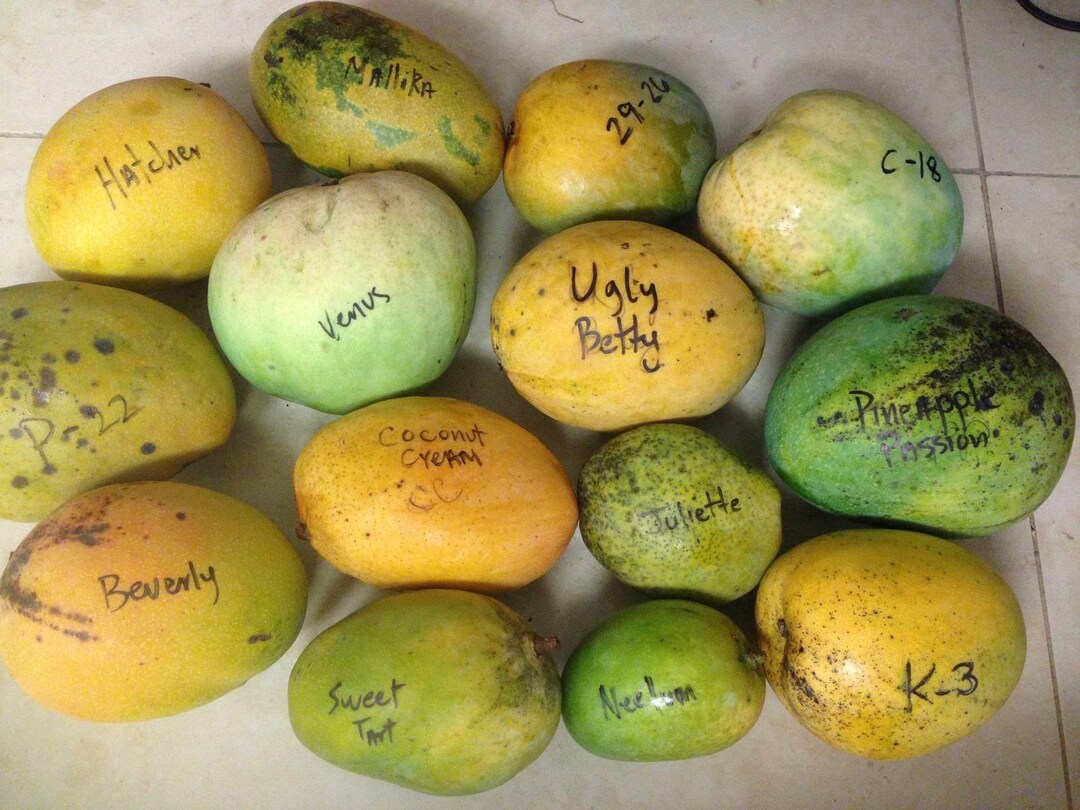 Mallika
29-26
Hatcher
C-18
Venus
Ugly
Betty
P-22
Pineapple
Passion
Coconut
Cream
CC
Juliette
Beverly
K-3
Sweet
Tart
Neelum